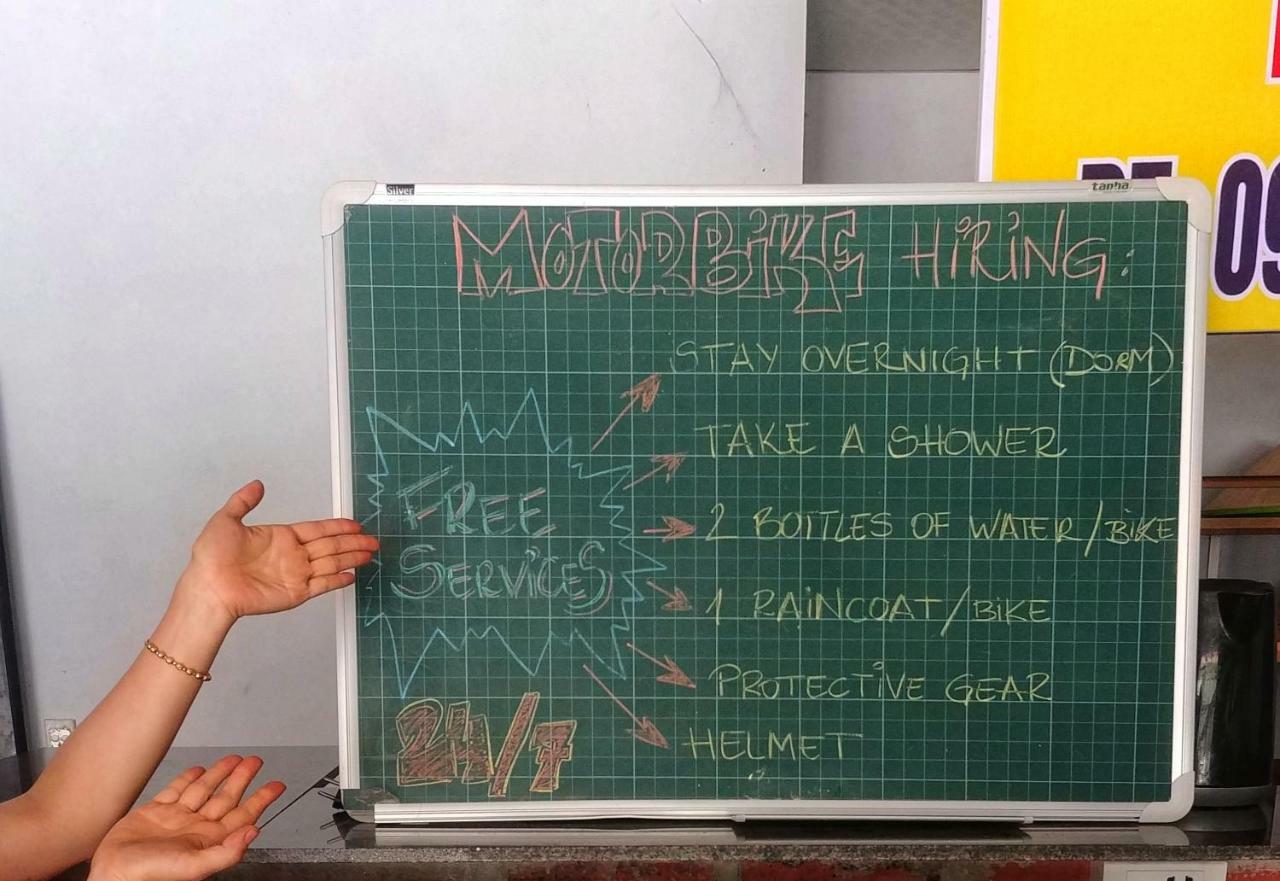 Silver
tanha
MOTORBIKE HIRING:
STAY OVERNIGHT (DORM)
TAKE A SHOWER
FREE
SERVICES
2 BOTTLES OF WATER/BIKE
1 RAINCOAT/BIKE
PROTECTIVE GEAR
24/7
HELMET
09